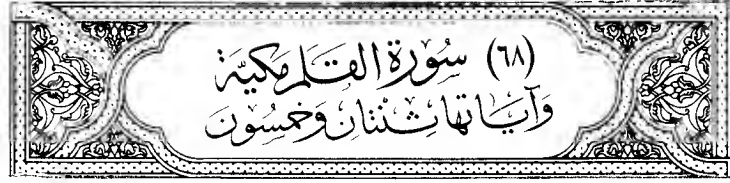 (٦٨) سُورَة القَلَم مَكيَّة
وَآيَاتهَا ثِنْتَانِ وَخَمْسُون